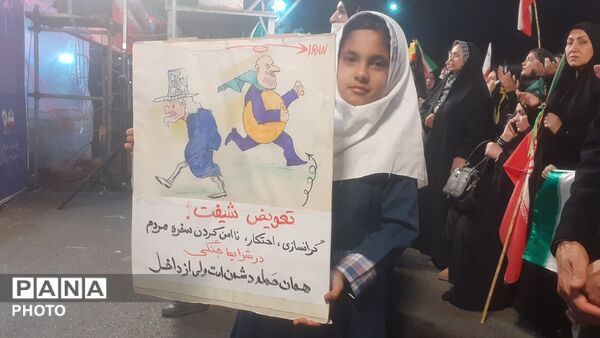 IRAN
تعویض شیفت!
گرانسازی، احتکار، ناامن کردن سفره مردم
در شرایط جنگی
همان حمله دشمن است ولی از داخل
PANA
PHOTO